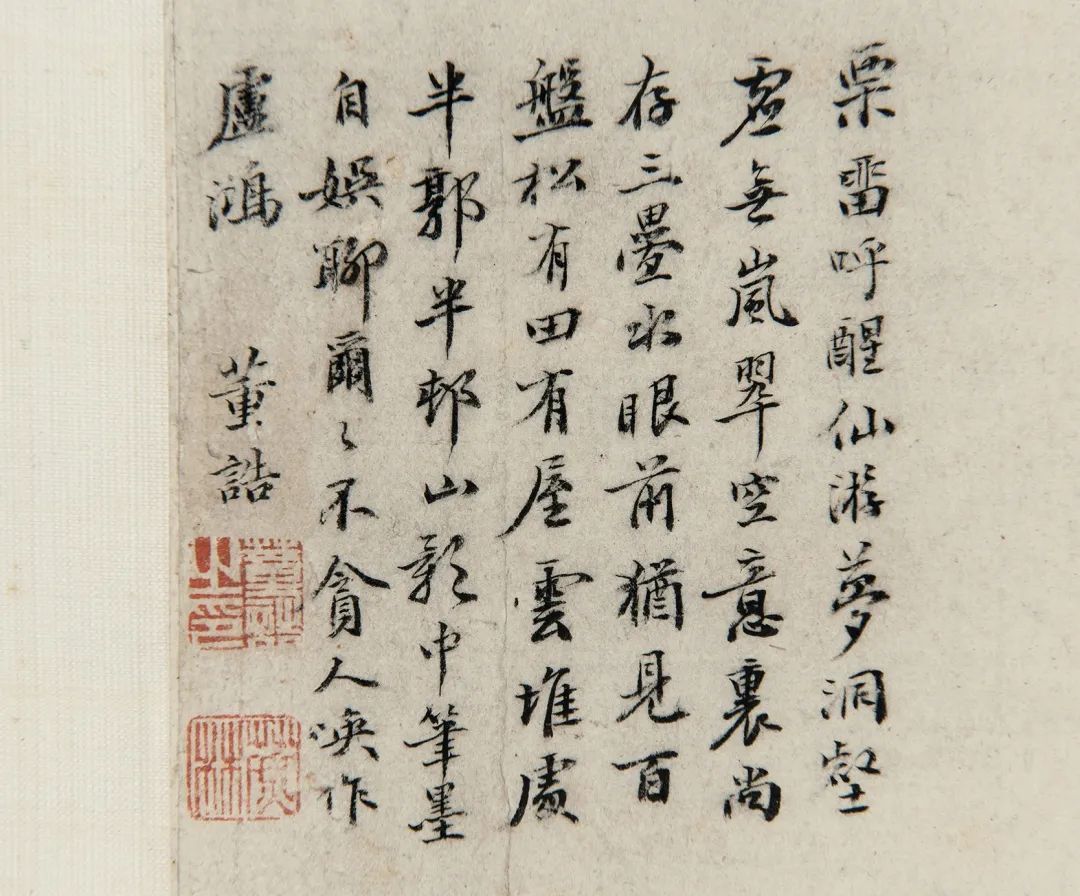 栗畱呼醒仙游夢洞壑
虛無嵐翠空意裏尚
存三疊水眼前猶見百
盤松有田有屋雲堆處
半郭半邨山影中筆墨
自娛聊爾〻不貪人喚作
盧鴻
董誥
董誥之印